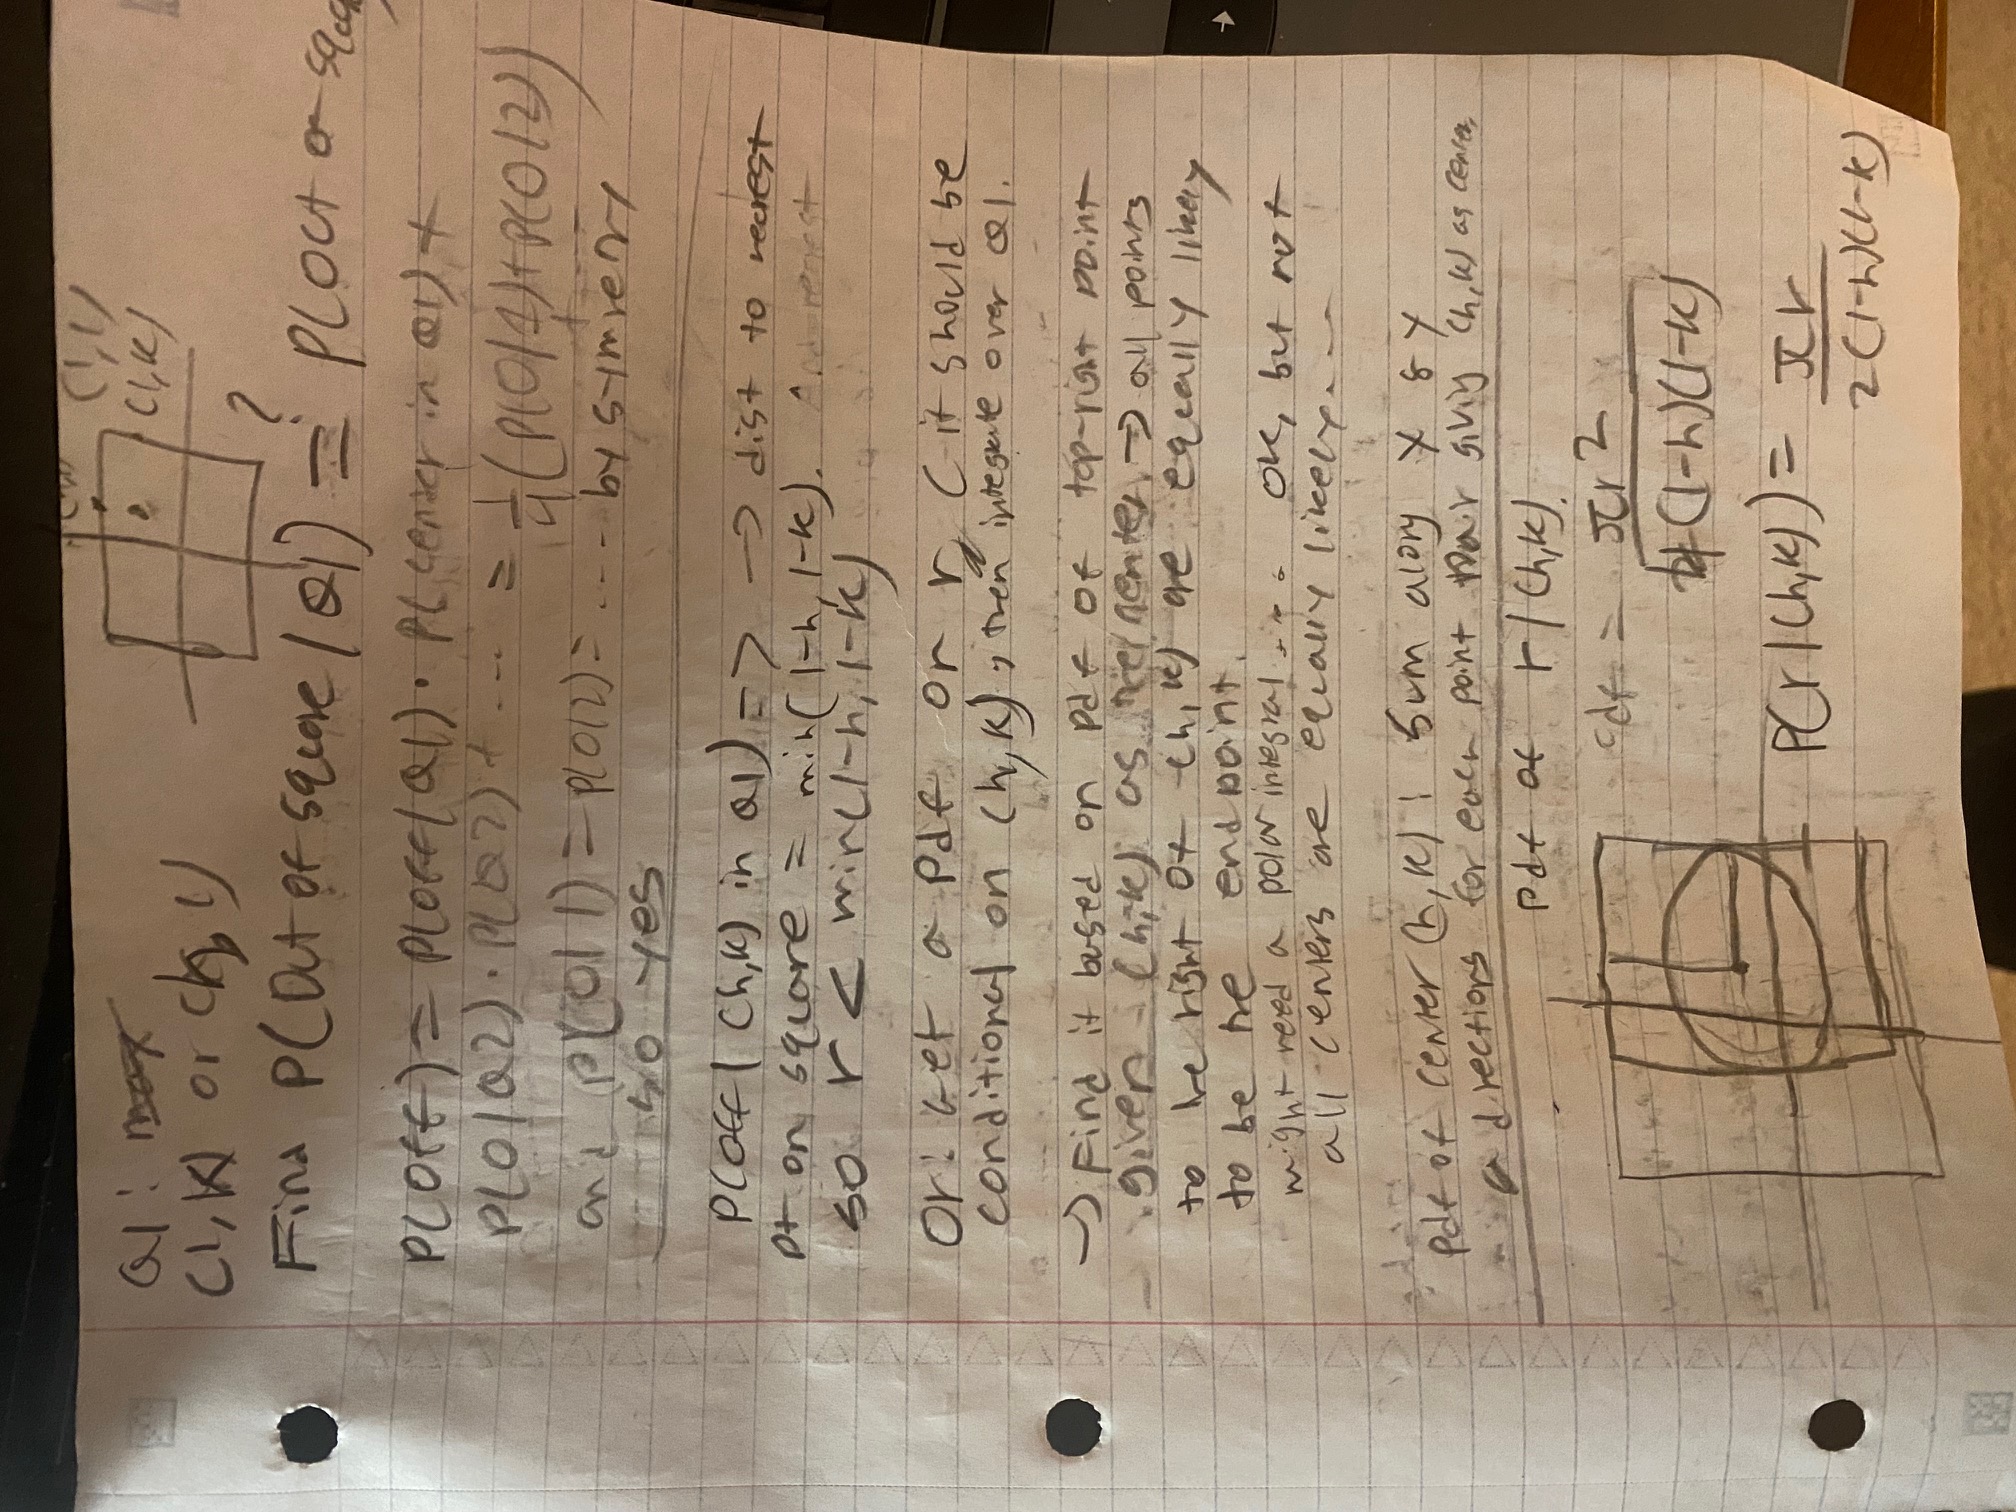 (1,1)
(h,k)
Q1:
(1,k) or (h,1)
Find P(Out of square | Q1) =? P(Out of squ
P(off) = P(off|Q1) · P(center in Q1) +
P(O|Q2) · P(Q2) + ... = 1/4 (P(O|1) + P(O|2)
and P(O|1) = P(O|2) = .... by symmetry
so yes
P(off | (h,k) in Q1) => → dist to nearest
pt on square = min(1-h, 1-k).
so r < min(1-h, 1-k)
Or: Get a pdf on r (-it should be
conditional on (h,k), then integrate over Q1.
→ Find it based on pdf of top-right point
given (h,k) as the center → all points
to the right of (h,k) are equally likely
to be the endpoint.
might need a polar integral ... ok, but not
all centers are equally likely...
Pdf of center (h,k): Sum along X & Y
directions for each point pair giving (h,k) as center
pdf of r | (h,k).
cdf = πr² / (1-h)(1-k)
P(r | (h,k)) = πr / 2(1-h)(1-k)